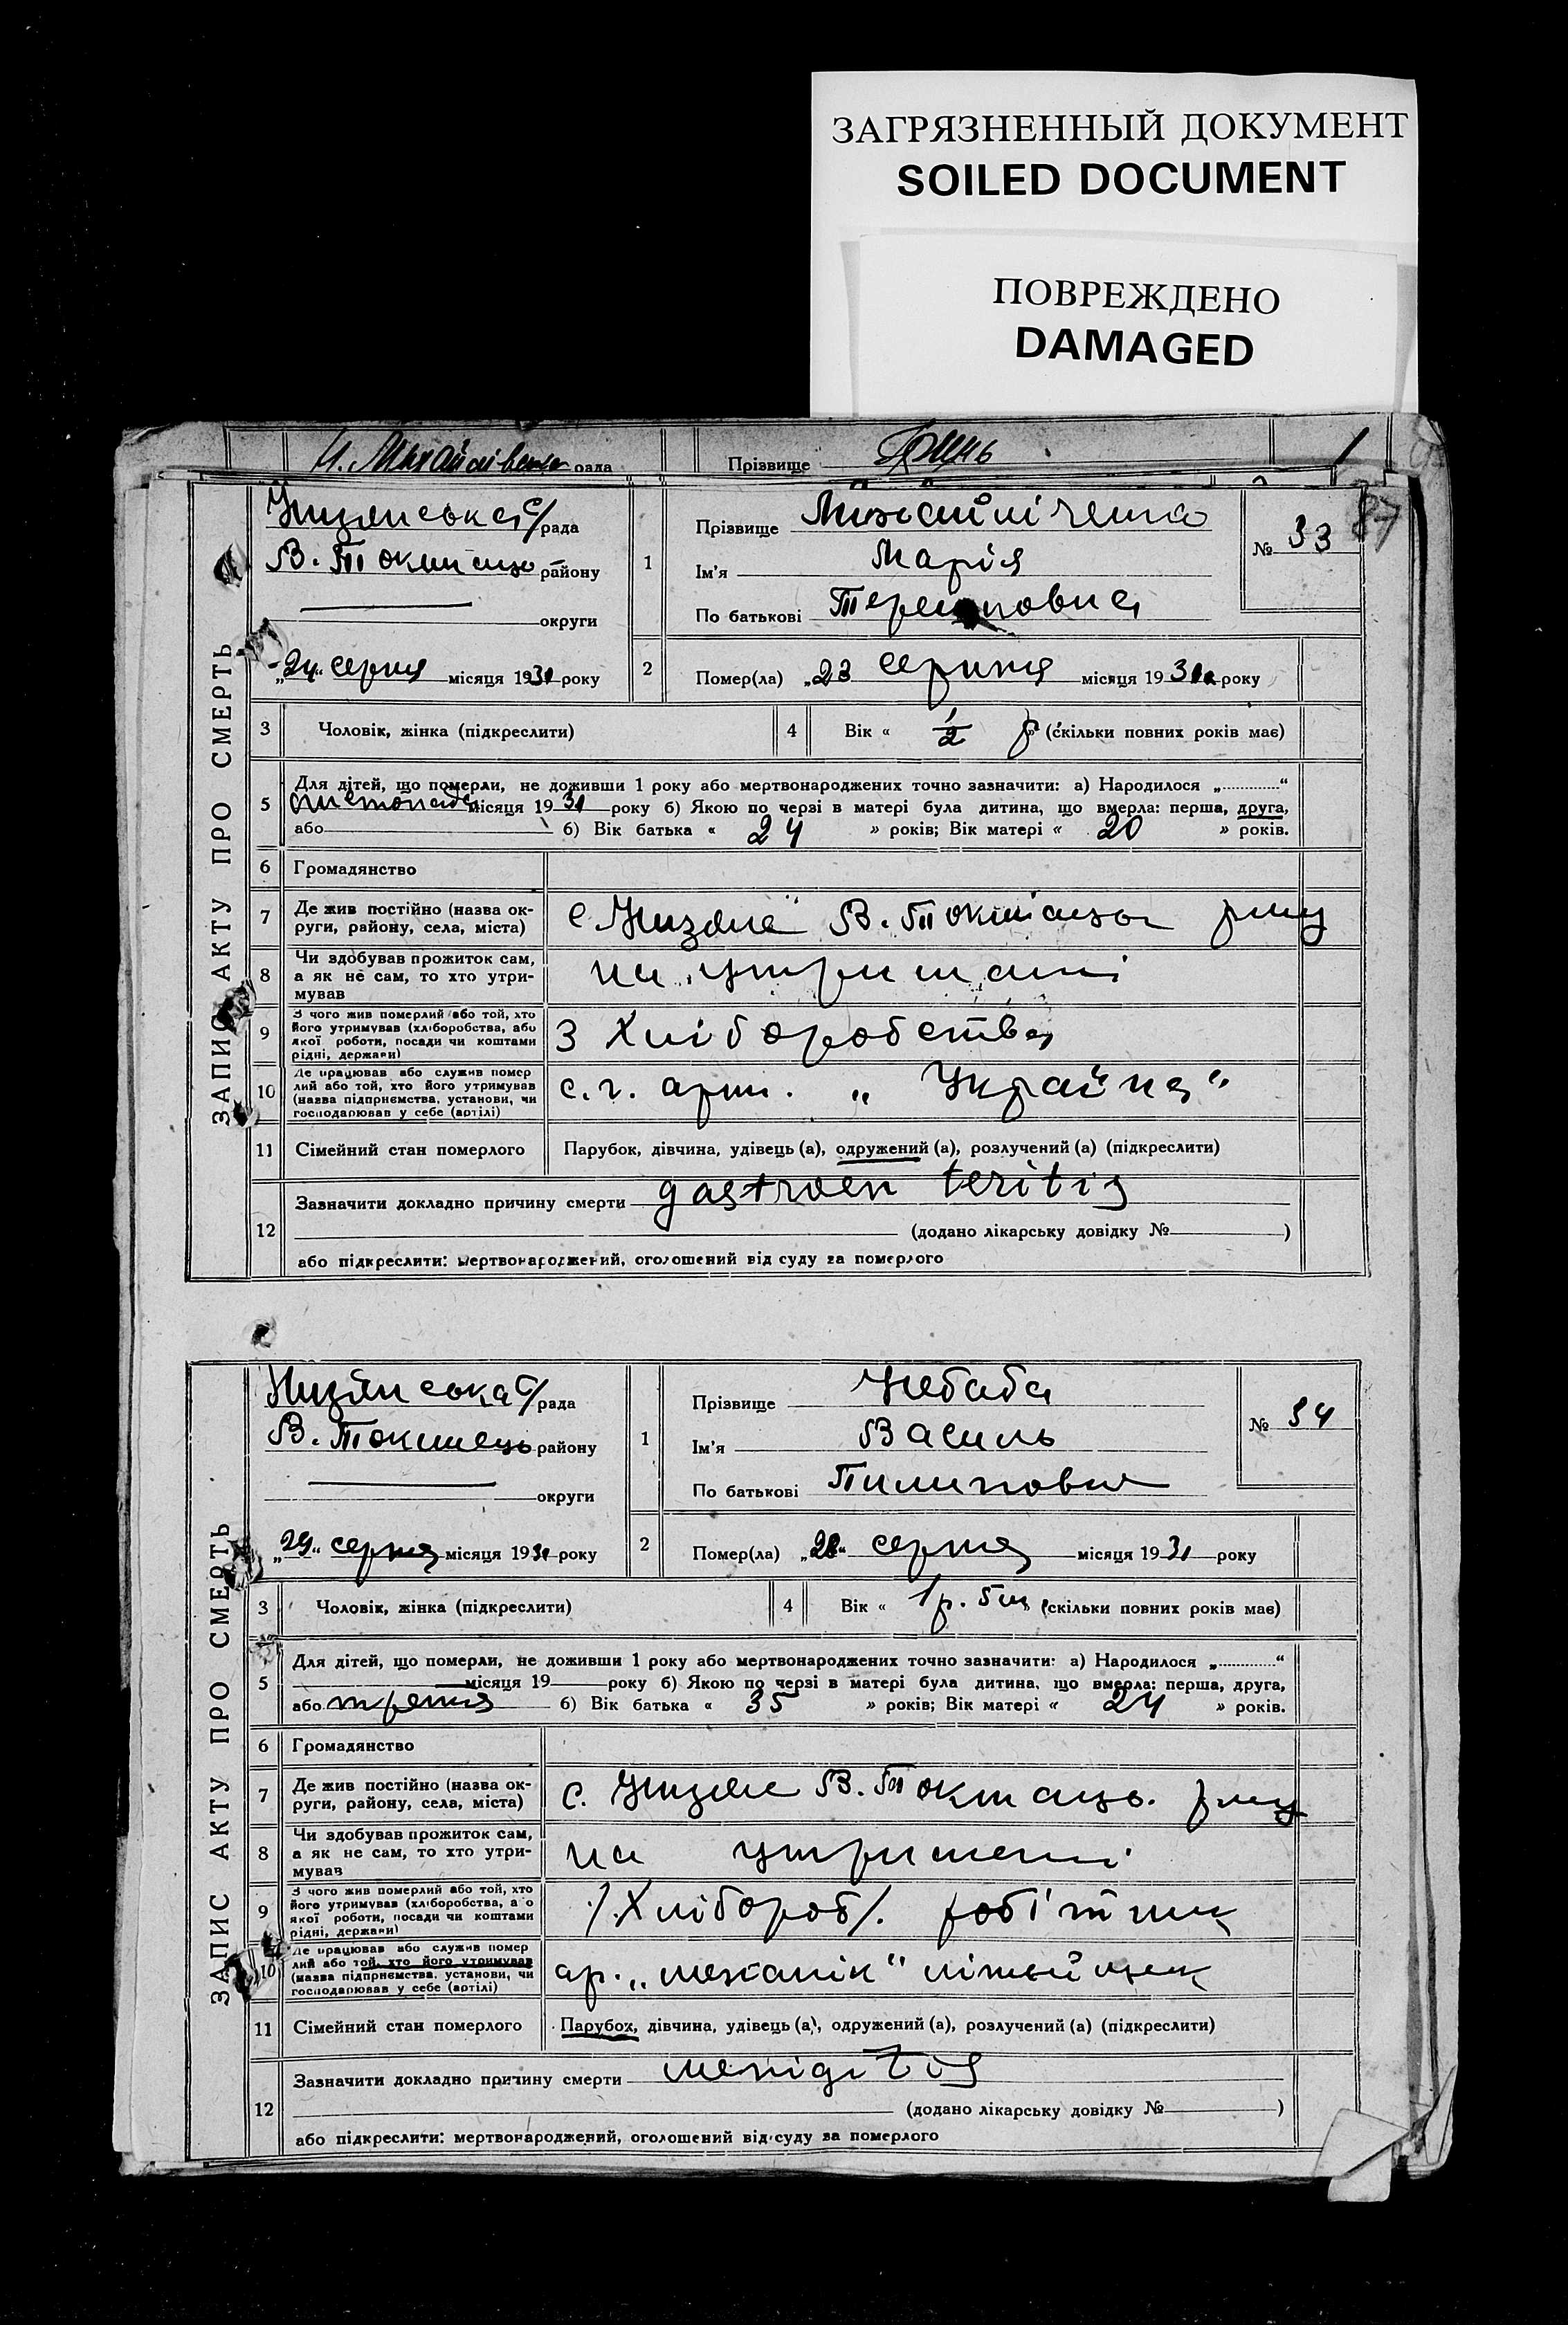 ЗАГРЯЗНЕННЫЙ ДОКУМЕНТ
SOILED DOCUMENT
ПОВРЕЖДЕНО
DAMAGED
рада
Прізвище
1
87
ЗАПИС АКТУ ПРО СМЕРТЬ
с/рада
В. Токмацьк району
округи
1
Прізвище
Ім'я Марія
По батькові
№ 33
„24“ серпня місяця 1931 року
2
Помер(ла) „23 серпня місяця 1931 року
3
Чоловік, жінка (підкреслити)
4
Вік « 1/2 р» (скільки повних років має)
5
Для дітей, що померли, не доживши 1 року або мертвонароджених точно зазначити: а) Народилося „............“
листопада місяця 1930 року б) Якою по черзі в матері була дитина, що вмерла: перша, друга,
або б) Вік батька « 24 » років; Вік матері « 20 » років.
6
Громадянство
7
Де жив постійно (назва ок-
руги, району, села, міста)
с. В. Токмацьк р-ну
8
Чи здобував прожиток сам,
а як не сам, то хто утри-
мував
на утриманні
9
З чого жив померлий або той, хто
його утримував (хліборобства, або
якої роботи, посади чи коштами
рідні, держави)
З Хліборобства
10
Де працював або служив помер
лий або той, хто його утримував
(назва підприємства, установи, чи
господарював у себе (артілі)
с. г. арт. „Україна“
11
Сімейний стан померлого
Парубок, дівчина, удівець (а), одружений (а), розлучений (а) (підкреслити)
12
Зазначити докладно причину смерти gastroen teritis
(додано лікарську довідку № )
або підкреслити: мертвонароджений, оголошений від суду за померлого
ЗАПИС АКТУ ПРО СМЕРТЬ
с/рада
В. Токмацьк району
округи
1
Прізвище Небаба
Ім'я Василь
По батькові Пилипович
№ 34
„29“ серпня місяця 1931 року
2
Помер(ла) „28“ серпня місяця 1931 року
3
Чоловік, жінка (підкреслити)
4
Вік « 1 р. 5 м» (скільки повних років має)
5
Для дітей, що померли, не доживши 1 року або мертвонароджених точно зазначити: а) Народилося „............“
місяця 19 року б) Якою по черзі в матері була дитина, що вмерла: перша, друга,
або третя б) Вік батька « 35 » років; Вік матері « 24 » років.
6
Громадянство
7
Де жив постійно (назва ок-
руги, району, села, міста)
с. В. Токмацьк. р-ну
8
Чи здобував прожиток сам,
а як не сам, то хто утри-
мував
на утриманні
9
З чого жив померлий або той, хто
його утримував (хліборобства, або
якої роботи, посади чи коштами
рідні, держави)
/. Хлібороб/. робітник
10
Де працював або служив помер
лий або той, хто його утримував
(назва підприємства, установи, чи
господарював у себе (артілі)
ар. „механік“
11
Сімейний стан померлого
Парубок, дівчина, удівець (а), одружений (а), розлучений (а) (підкреслити)
12
Зазначити докладно причину смерти menigitis
(додано лікарську довідку № )
або підкреслити: мертвонароджений, оголошений від суду за померлого